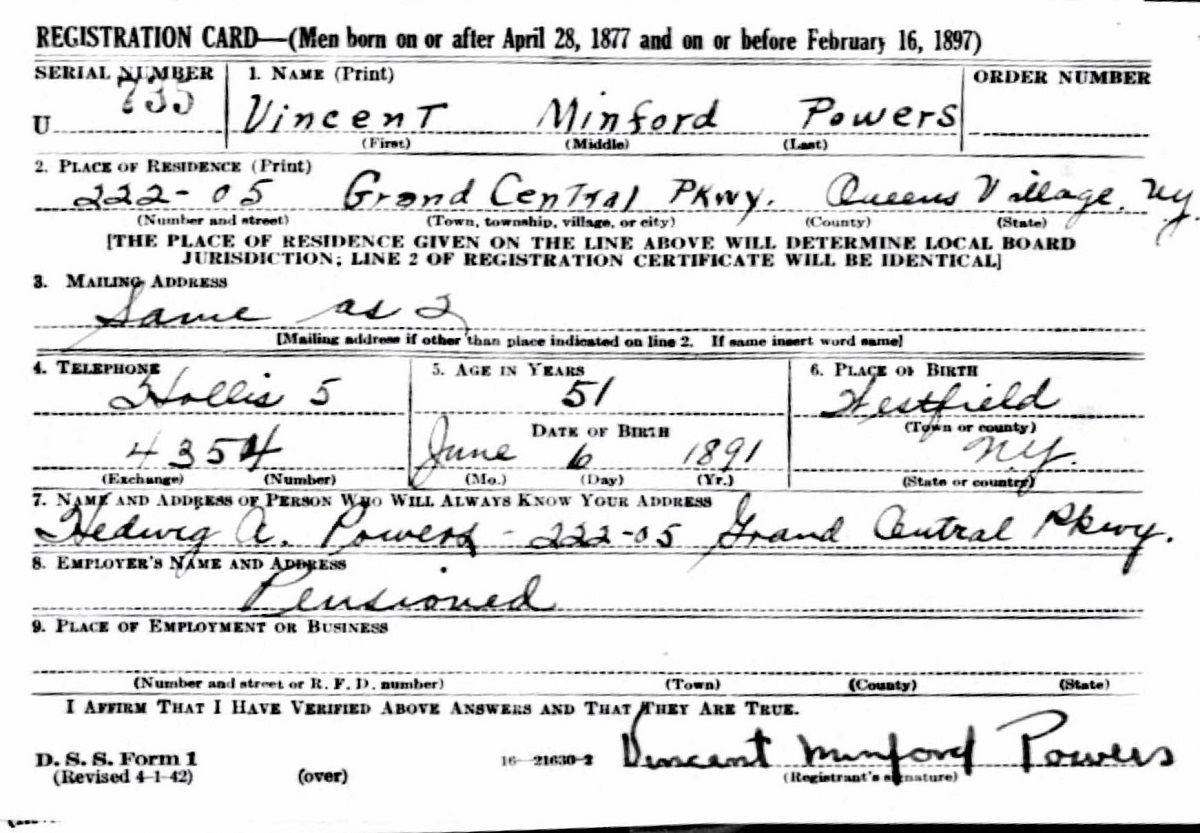 REGISTRATION CARD—(Men born on or after April 28, 1877 and on or before February 16, 1897)
SERIAL NUMBER 1. NAME (Print) ORDER NUMBER
U 735 Vincent Minford Powers
(First) (Middle) (Last)
2. PLACE OF RESIDENCE (Print)
222-05 Grand Central Pkwy. Queens Village, Ny.
(Number and street) (Town, township, village, or city) (County) (State)
[THE PLACE OF RESIDENCE GIVEN ON THE LINE ABOVE WILL DETERMINE LOCAL BOARD
JURISDICTION; LINE 2 OF REGISTRATION CERTIFICATE WILL BE IDENTICAL]
3. MAILING ADDRESS
Same as 2
[Mailing address if other than place indicated on line 2. If same insert word same]
4. TELEPHONE 5. AGE IN YEARS 6. PLACE OF BIRTH
Hollis 5 51 Westfield
DATE OF BIRTH (Town or county)
4354 June 6 1891 N.Y.
(Exchange) (Number) (Mo.) (Day) (Yr.) (State or country)
7. NAME AND ADDRESS OF PERSON WHO WILL ALWAYS KNOW YOUR ADDRESS
Hedwig A. Powers - 222-05 Grand Central Pkwy.
8. EMPLOYER'S NAME AND ADDRESS
Pensioned
9. PLACE OF EMPLOYMENT OR BUSINESS
(Number and street or R. F. D. number) (Town) (County) (State)
I AFFIRM THAT I HAVE VERIFIED ABOVE ANSWERS AND THAT THEY ARE TRUE.
D. S. S. Form 1 16—21630-2 Vincent Minford Powers
(Revised 4-1-42) (over) (Registrant's signature)